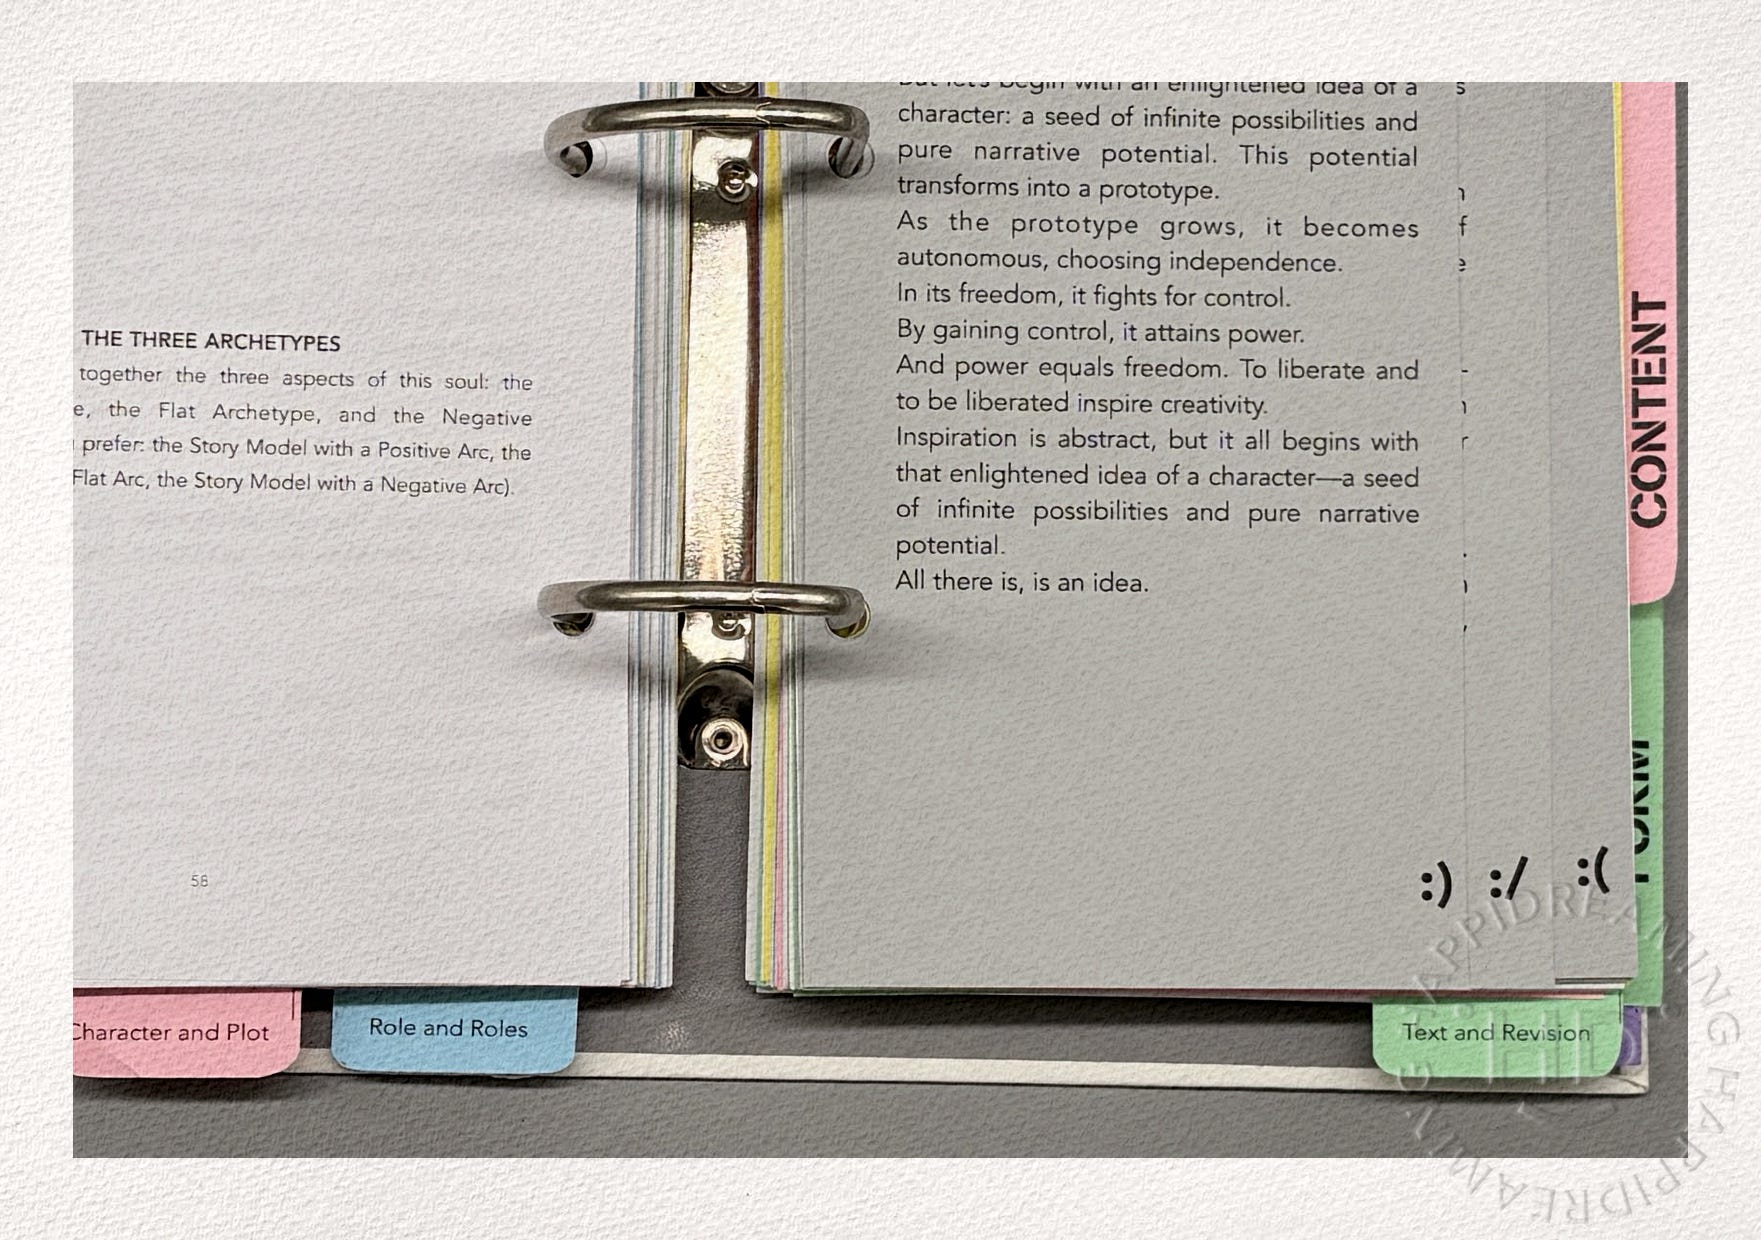 THE THREE ARCHETYPES
together the three aspects of this soul: the
e, the Flat Archetype, and the Negative
prefer: the Story Model with a Positive Arc, the
Flat Arc, the Story Model with a Negative Arc).
58
Character and Plot
Role and Roles
But let's begin with an enlightened idea of a
character: a seed of infinite possibilities and
pure narrative potential. This potential
transforms into a prototype.
As the prototype grows, it becomes
autonomous, choosing independence.
In its freedom, it fights for control.
By gaining control, it attains power.
And power equals freedom. To liberate and
to be liberated inspire creativity.
Inspiration is abstract, but it all begins with
that enlightened idea of a character—a seed
of infinite possibilities and pure narrative
potential.
All there is, is an idea.
:) :/ :(
CONTENT
FORM
Text and Revision
HAPPIDREAMING HAPPIDREAMING
HD